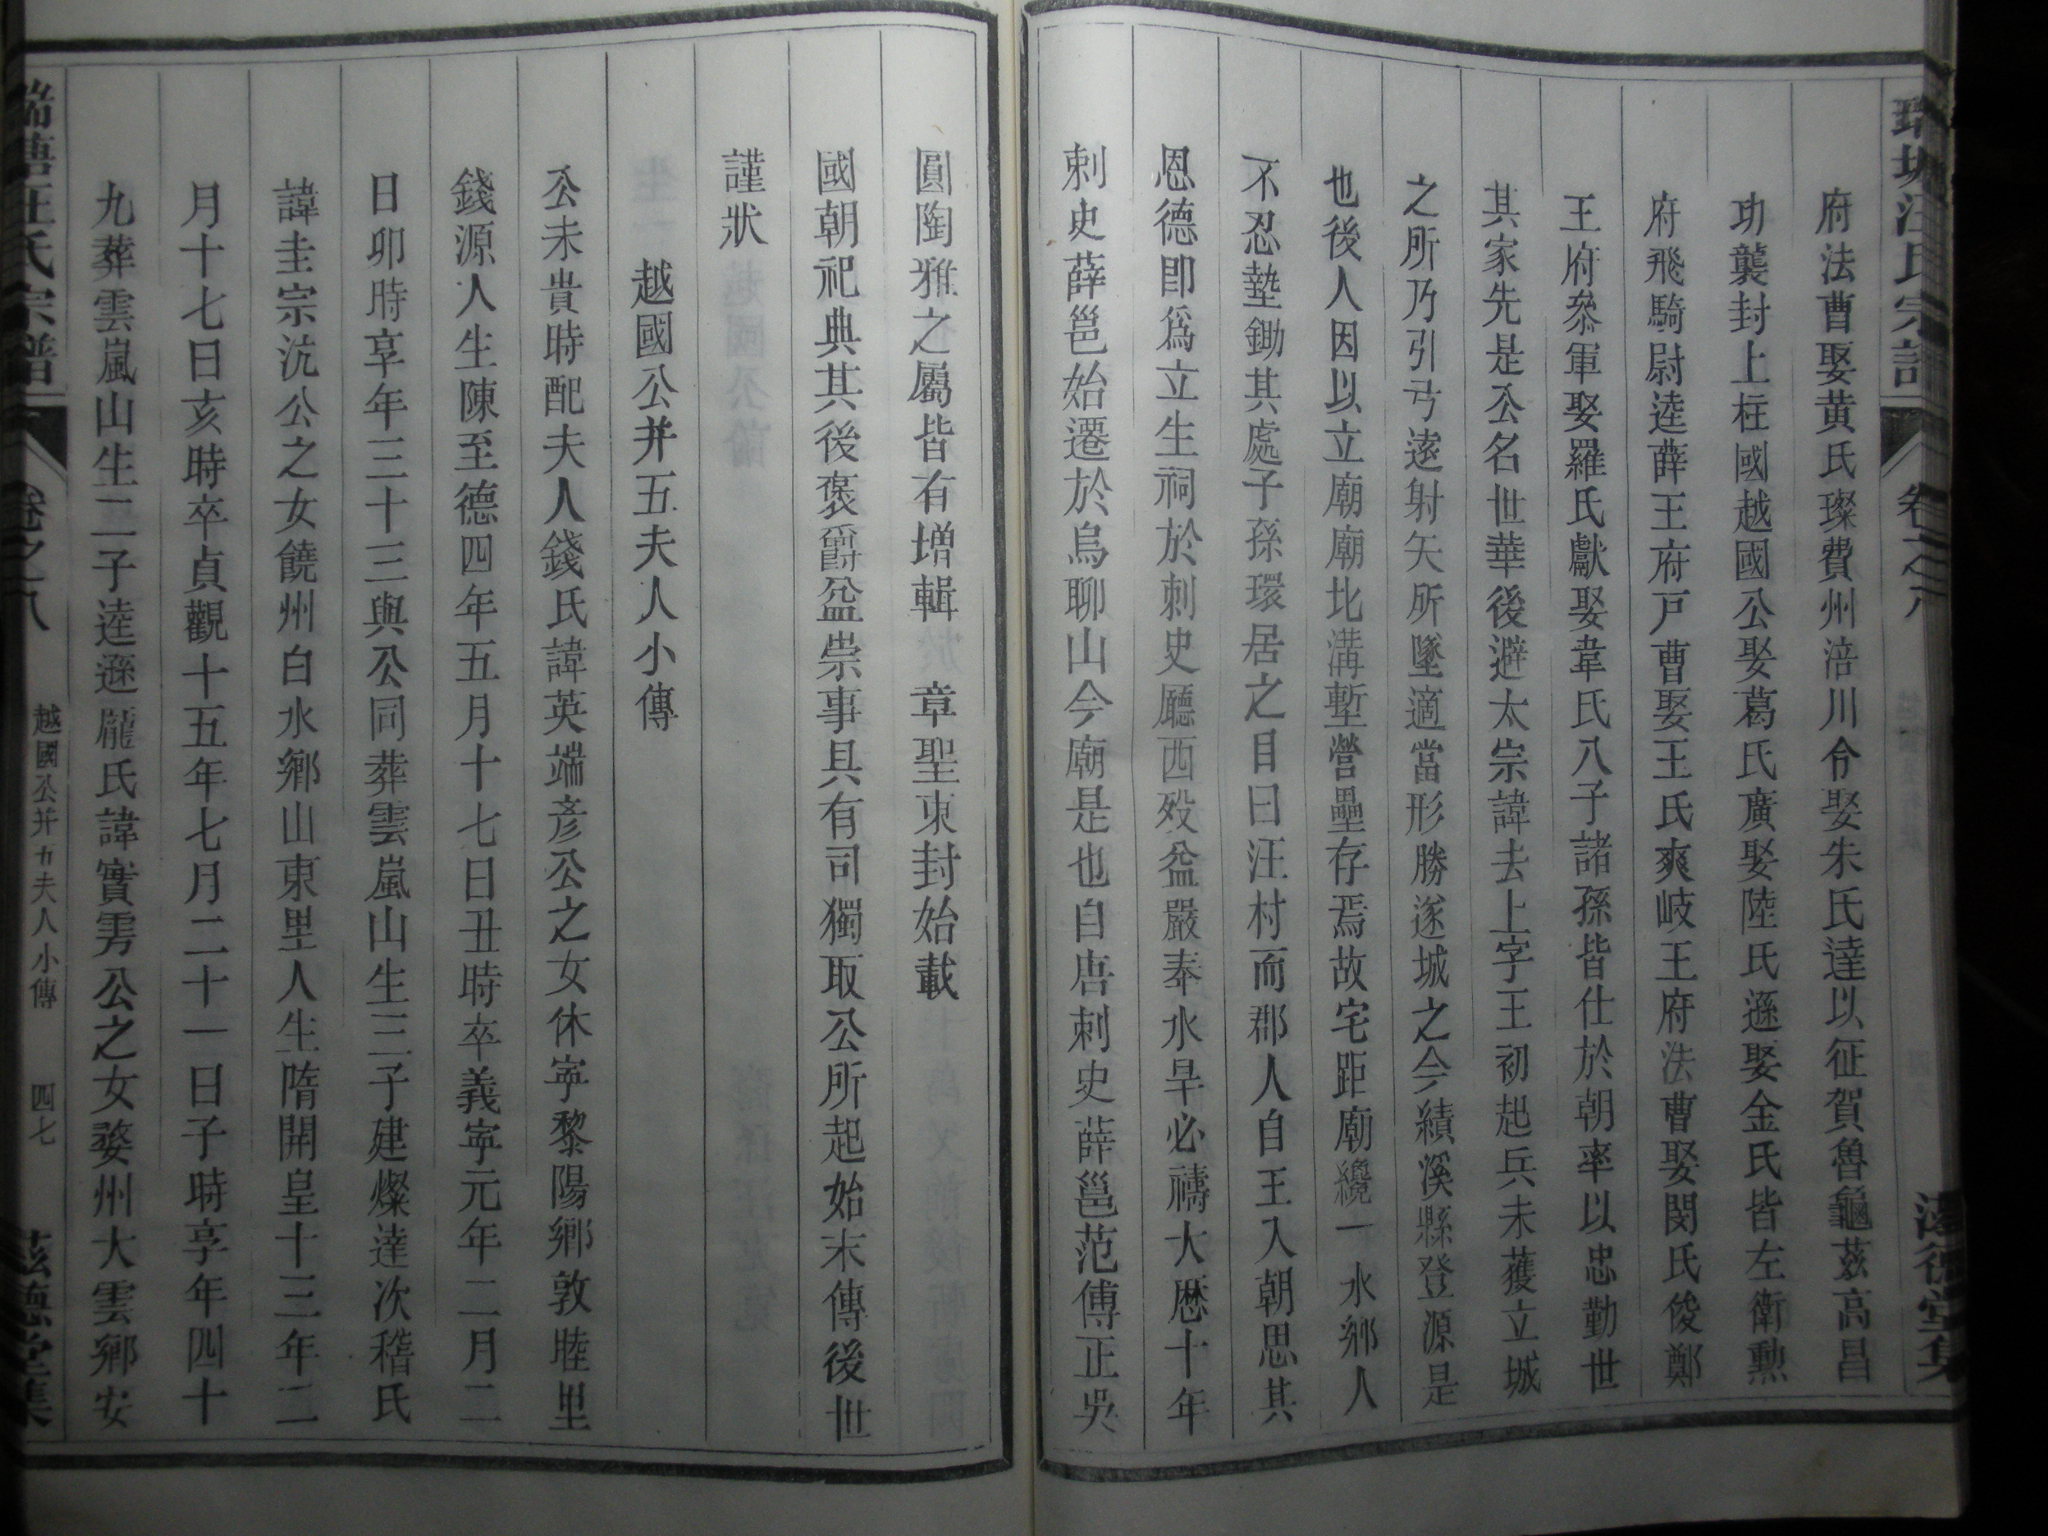 府法曹娶黄氏璨費州涪川令娶朱氏達以征賀魯龜茲高昌
功襲封上柱國越國公娶葛氏廣娶陸氏遜娶金氏皆左衛勲
府飛騎尉逵薛王府戸曹娶王氏爽岐王府法曹娶閔氏俊鄭
王府叅軍娶羅氏獻娶韋氏八子諸孫皆仕於朝率以忠勤世
其家先是公名世華後避太宗諱去上字王初起兵未獲立城
之所乃引弓遠射矢所墜適當形勝遂城之今績溪縣登源是
也後人因以立廟廟北溝塹營壘存焉故宅距廟纔一水鄉人
不忍墊鋤其處子孫環居之目曰汪村而郡人自王入朝思其
恩德即爲立生祠於刺史廳西歿益嚴奉水旱必禱大厯十年
刺史薛邕始遷於烏聊山今廟是也自唐刺史薛邕范傳正吳
圓陶雅之屬皆有增輯　章聖東封始載
國朝祀典其後褒爵益崇事具有司獨取公所起始末傳後世
謹狀
越國公并五夫人小傳
公未貴時配夫人錢氏諱英端彦公之女休寧黎陽鄉敦睦里
錢源人生陳至德四年五月十七日丑時卒義寧元年二月二
日卯時享年三十三與公同葬雲嵐山生三子建燦達次稽氏
諱圭宗沆公之女饒州白水鄉山東里人生隋開皇十三年二
月十七日亥時卒貞觀十五年七月二十一日子時享年四十
九葬雲嵐山生二子逵遜龎氏諱實雱公之女婺州大雲鄉安
瑞塘汪氏宗譜
卷之八
越國公并五夫人小傳
四七